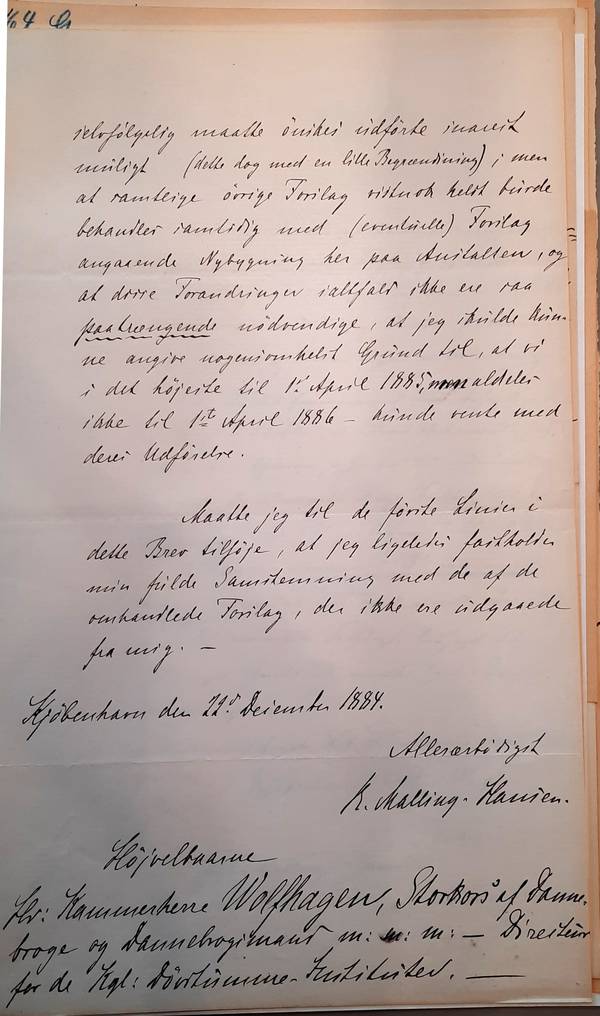 selvfölgelig maatte önskes udförte snarest
muligt (dette dog med en lille Begrændsning); men
at samtlige övrige Forslag vistnok helst burde
behandles samtidig med (eventuelle) Forslag
angaaende Nybygning her paa Anstalten, og
at disse Forandringer ialtfald ikke ere saa
paatrængende nödvendige, at jeg skulde kun-
ne angive nogensomhelst Grund til, at vi
i det höjeste til 1st April 1885, men aldeles
ikke til 1ste April 1886 – kunde vente med
deres Udförelse.
Maatte jeg til de förste Linier i
dette Brev tilföje, at jeg ligeledes fastholder
min fulde Samstemning med de af de
omhandlede Forslag, der ikke ere udgaaede
fra mig. –
Kjöbenhavn den 22d December 1884.
Allerærbödigst
R. Malling-Hansen.
Höjvelbaarne
Hr: Kammerherre Wolfhagen, Storkors af Danne-
broge og Dannebrogsmand m: m: m: – Directeur
for de Kgl: Dövstumme-Instituter. –